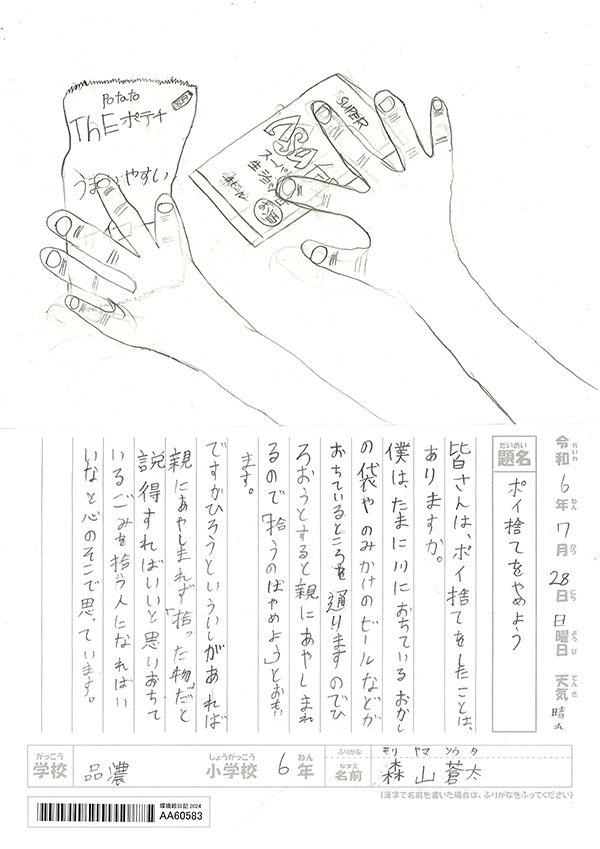 Potato
ThE ポテチ
うま
やすい
SUPER
スーパー
令和6年7月28日日曜日 天気 晴れ
れいわ ねん がつ にち ようび てんき
だいめい
題名
ポイ捨てをやめよう
皆さんは、ポイ捨てをしたことは、
ありますか。
僕は、たまに川におちているおかし
の袋やのみかけのビールなどが
おちているところを通りますのでひ
ろおうとすると親にあやしまれ
るので「拾うのはやめよう」とおもい
ます。
ですがひろうといういしがあれば
親にあやしまれず「拾った物」だと
説得すればいいと思いおちて
いるごみを拾う人になればい
いなと心のそこで思っています。
がっこう
学校
品濃
しょうがっこう
小学校
6年
ねん
ふりがな
モリ ヤマ ソウ タ
なまえ
名前
森山蒼太
(漢字で名前を書いた場合は、ふりがなをふってください)
環境絵日記 2024
AA60583